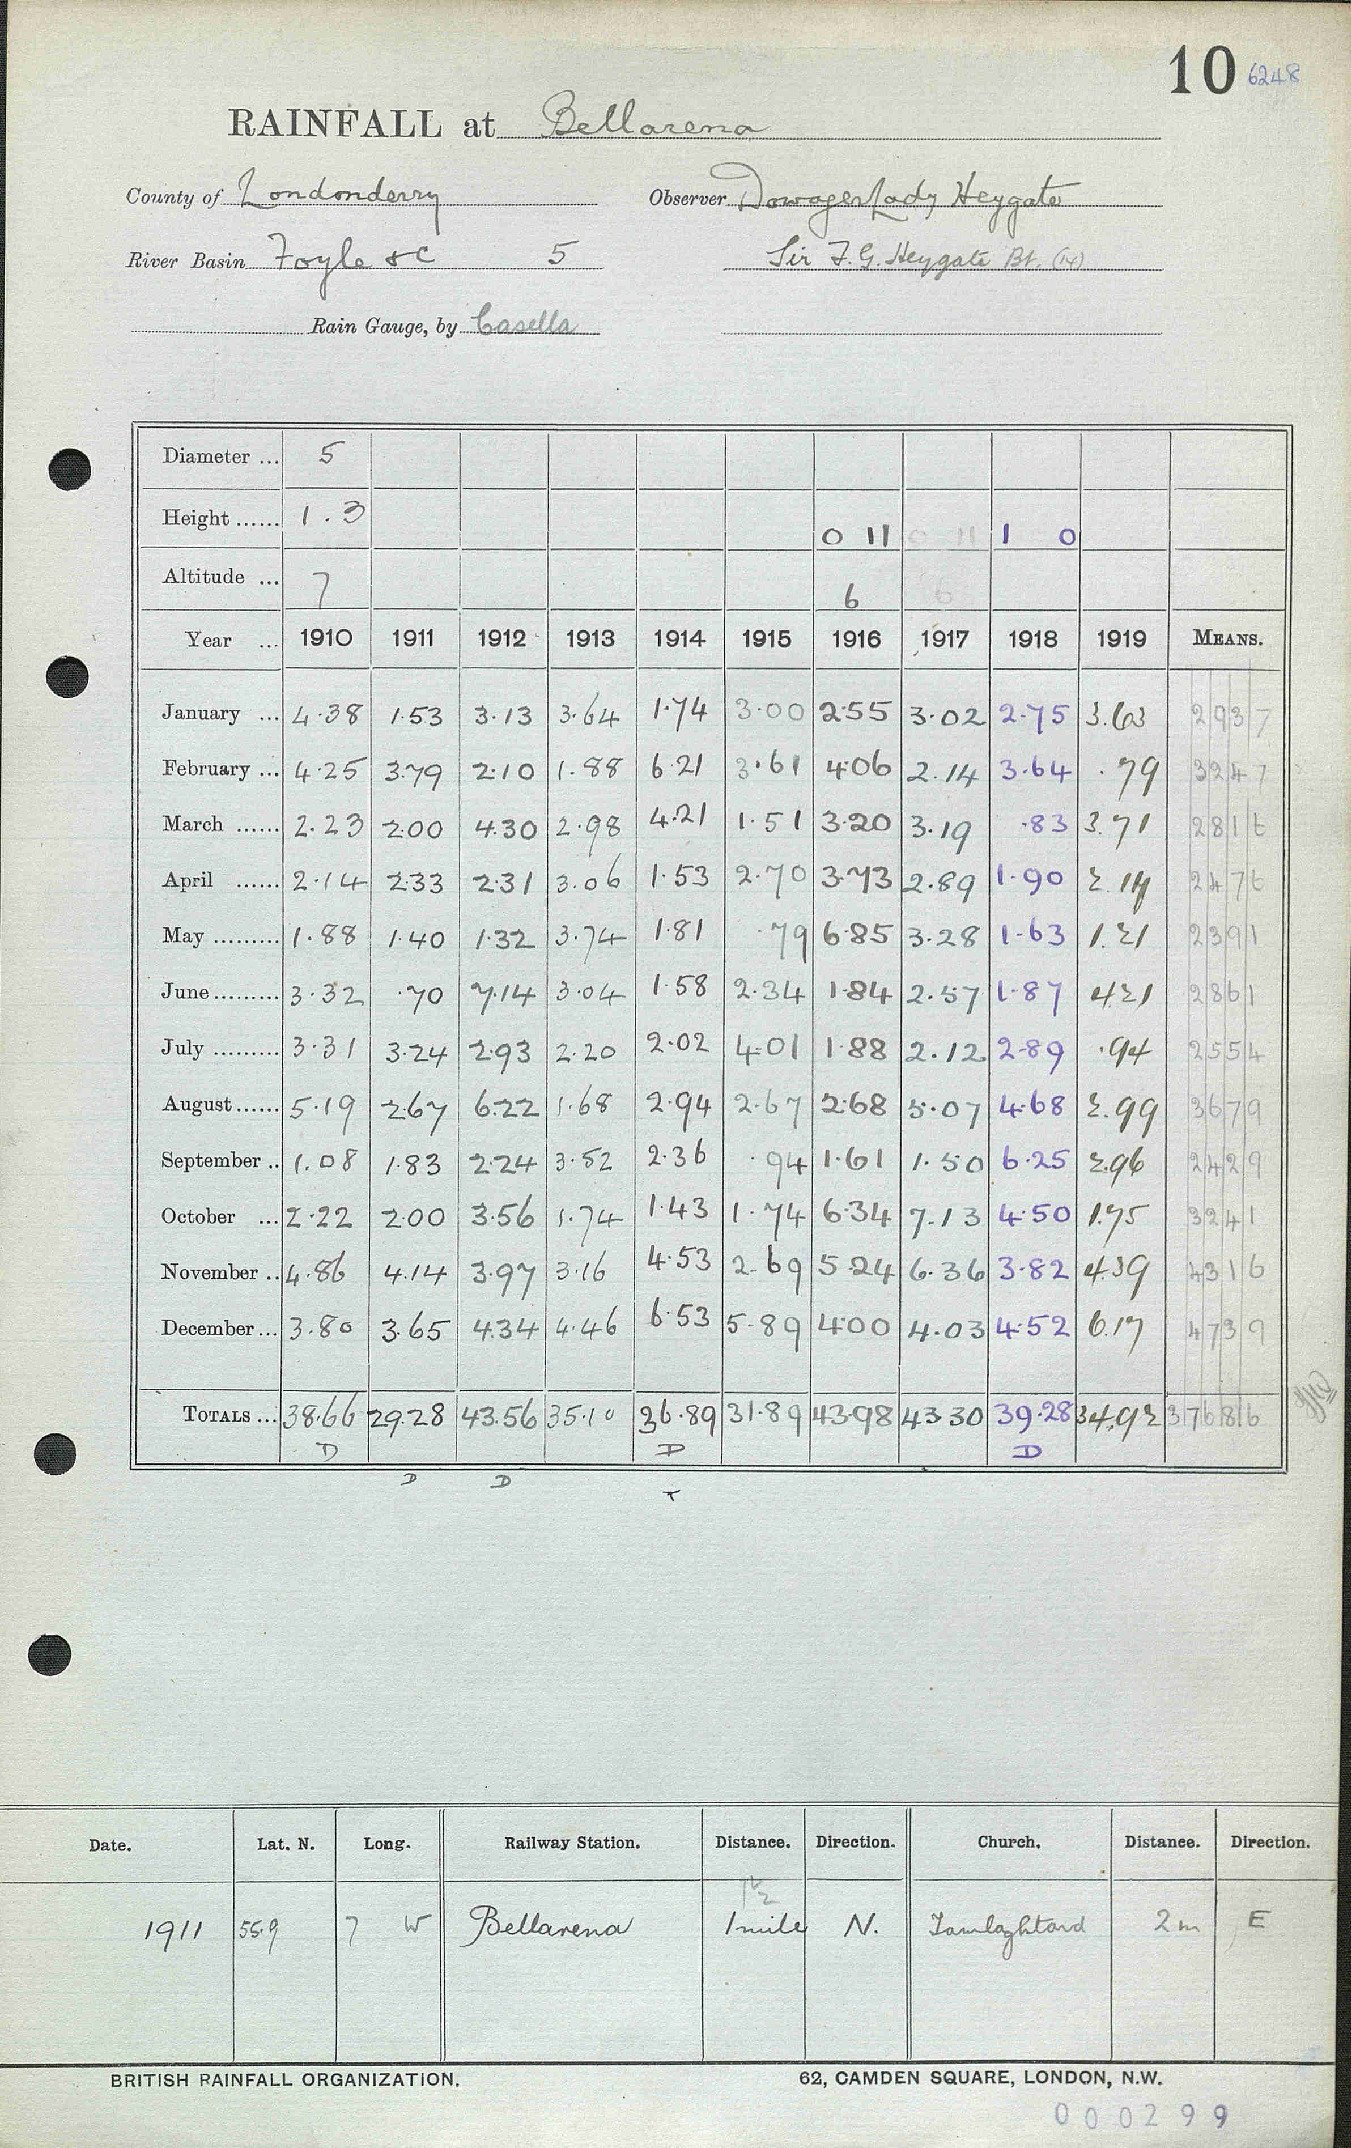 10 6248
RAINFALL at Bellarena
County of Londonderry Observer Dowager Lady Heygate
River Basin Foyle &c 5 Sir F. G. Heygate Bt. (14)
Rain Gauge, by Casella
Diameter ... 5
Height ...... 1.3 0 11 0 11 1 0
Altitude ... 7 6 6
Year ... 1910 1911 1912 1913 1914 1915 1916 1917 1918 1919 MEANS.
January ... 4.38 1.53 3.13 3.64 1.74 3.00 2.55 3.02 2.75 3.63 2937
February ... 4.25 3.79 2.10 1.88 6.21 3.61 4.06 2.14 3.64 .79 3247
March ...... 2.23 2.00 4.30 2.98 4.21 1.51 3.20 3.19 .83 3.71 2816
April ...... 2.14 2.33 2.31 3.06 1.53 2.70 3.73 2.89 1.90 2.17 2476
May ......... 1.88 1.40 1.32 3.74 1.81 .79 6.85 3.28 1.63 1.21 2391
June ......... 3.32 .70 7.14 3.04 1.58 2.34 1.84 2.57 1.87 4.21 2861
July ......... 3.31 3.24 2.93 2.20 2.02 4.01 1.88 2.12 2.89 .94 2554
August ...... 5.19 2.67 6.22 1.68 2.94 2.67 2.68 5.07 4.68 2.99 3679
September .. 1.08 1.83 2.24 3.52 2.36 .94 1.61 1.50 6.25 2.96 2429
October ... 2.22 2.00 3.56 1.74 1.43 1.74 6.34 7.13 4.50 1.75 3241
November .. 4.86 4.14 3.97 3.16 4.53 2.69 5.24 6.36 3.82 4.39 4316
December ... 3.80 3.65 4.34 4.46 6.53 5.89 4.00 4.03 4.52 6.17 4739
TOTALS ... 38.66 29.28 43.56 35.10 36.89 31.89 43.98 43.30 39.28 34.92 37686
D D D
D D
Date. Lat. N. Long. Railway Station. Distance. Direction. Church. Distance. Direction.
1½
1911 55.9 7 W Bellarena 1 mile N. Tamlaghtard 2 m E
BRITISH RAINFALL ORGANIZATION. 62, CAMDEN SQUARE, LONDON, N.W.
000299